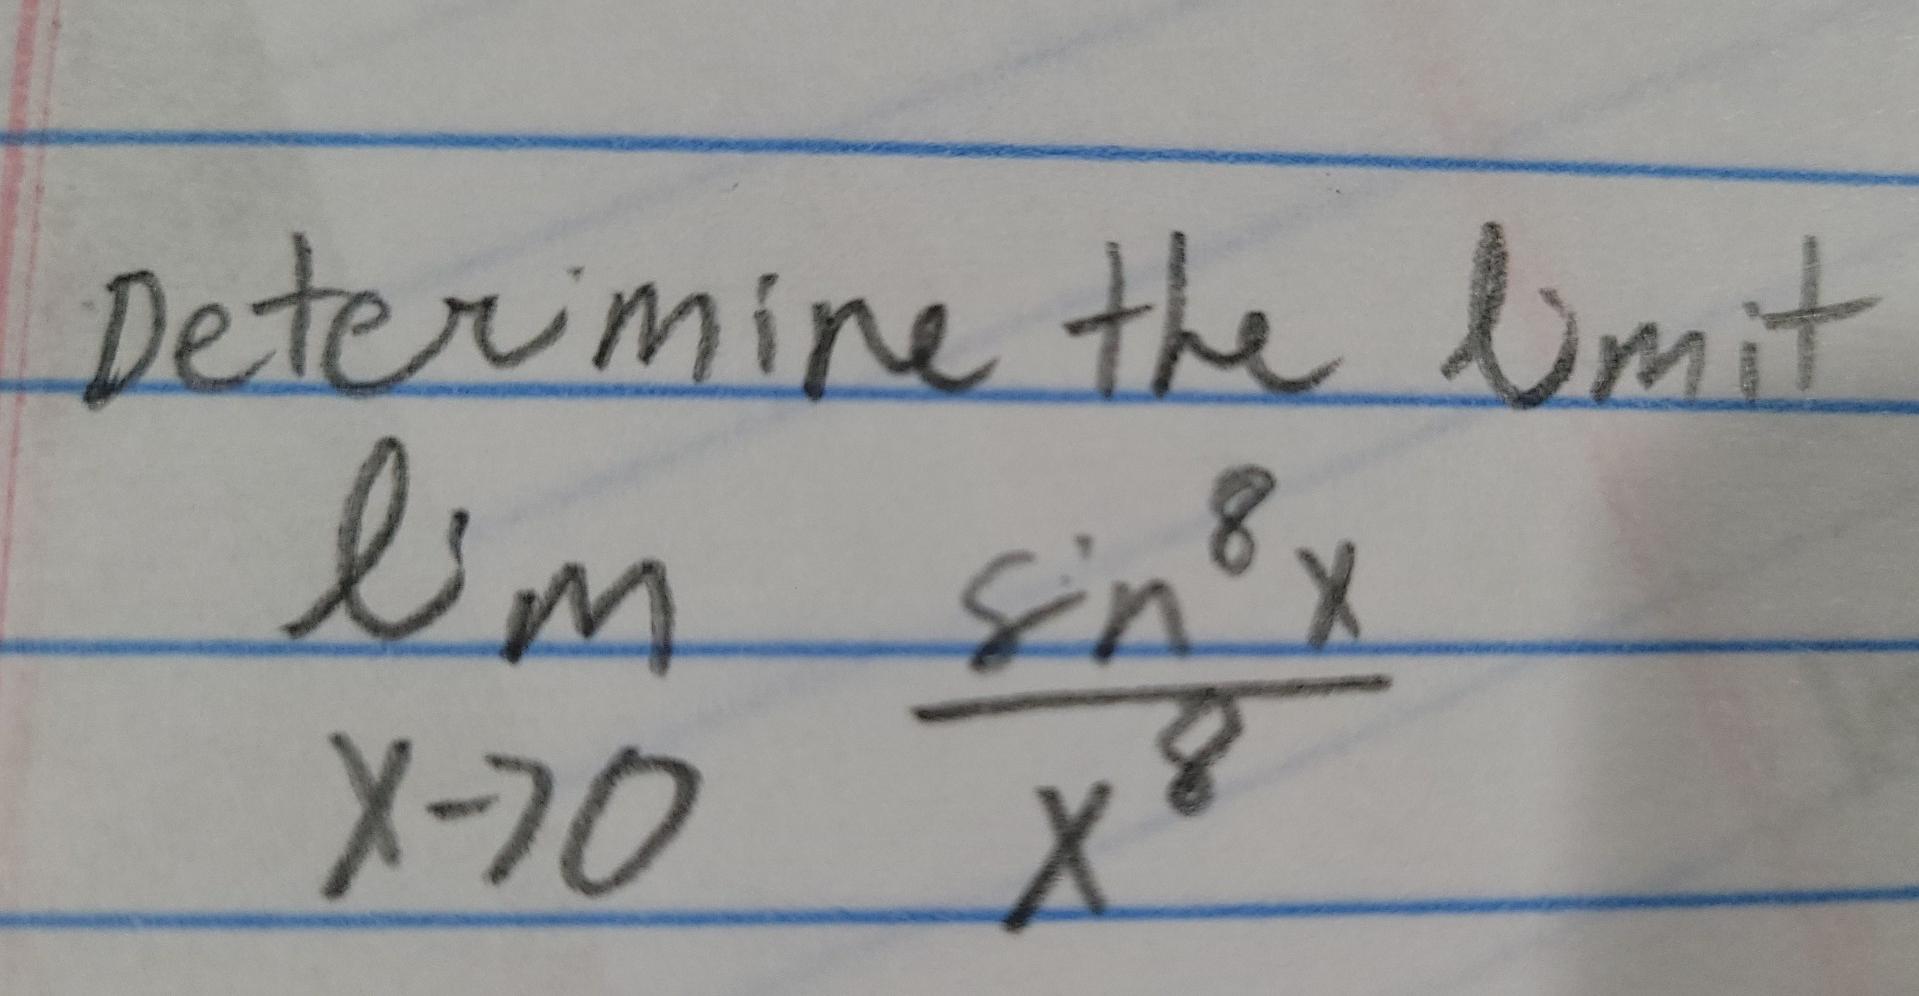 Determine the limit
lim sin⁸x / x⁸
x→0